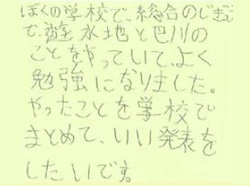 ぼくの学校で、総合のじぎょう
で、遊水地と巴川の
ことをやっていて、よく
勉強になりました。
やったことを学校で
まとめて、いい発表を
したいです。